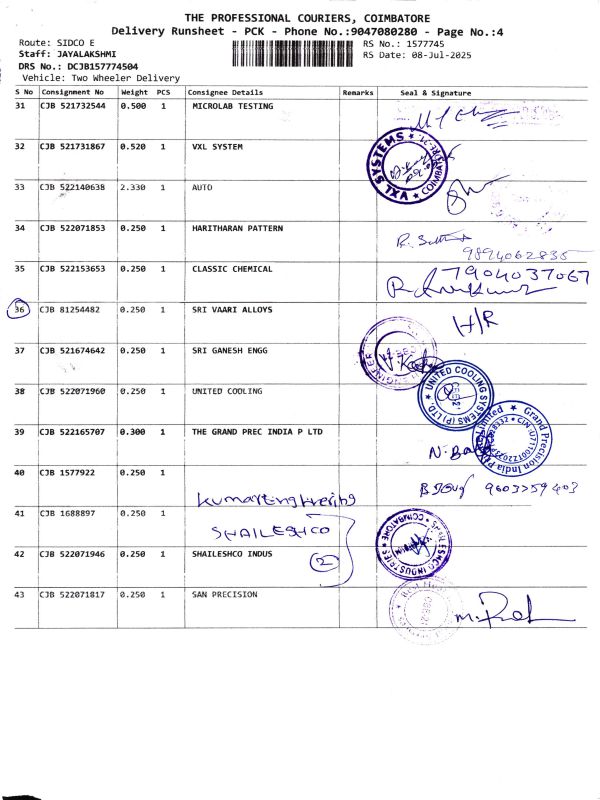 THE PROFESSIONAL COURIERS, COIMBATORE
Delivery Runsheet - PCK - Phone No.:9047080280 - Page No.:4
Route: SIDCO E
RS No.: 1577745
Staff: JAYALAKSHMI
RS Date: 08-Jul-2025
DRS No.: DCJB157774504
Vehicle: Two Wheeler Delivery
S No Consignment No Weight PCS Consignee Details Remarks Seal & Signature
31 CJB 521732544 0.500 1 MICROLAB TESTING
32 CJB 521731867 0.520 1 VXL SYSTEM
VXL SYSTEMS
33 CJB 522140638 2.330 1 AUTO
34 CJB 522071853 0.250 1 HARITHARAN PATTERN
9894062835
35 CJB 522153653 0.250 1 CLASSIC CHEMICAL
7904037067
36 CJB 81254482 0.250 1 SRI VAARI ALLOYS
H/R
37 CJB 521674642 0.250 1 SRI GANESH ENGG
38 CJB 522071960 0.250 1 UNITED COOLING
UNITED COOLING SYSTEMS (P) LTD.
39 CJB 522165707 0.300 1 THE GRAND PREC INDIA P LTD
Grand Precision India
40 CJB 1577922 0.250 1
kumar Engineering
9603759403
41 CJB 1688897 0.250 1
SHAILESHCO
42 CJB 522071946 0.250 1 SHAILESHCO INDUS
2
SHAILESHCO INDUSTRIES COIMBATORE
43 CJB 522071817 0.250 1 SAN PRECISION